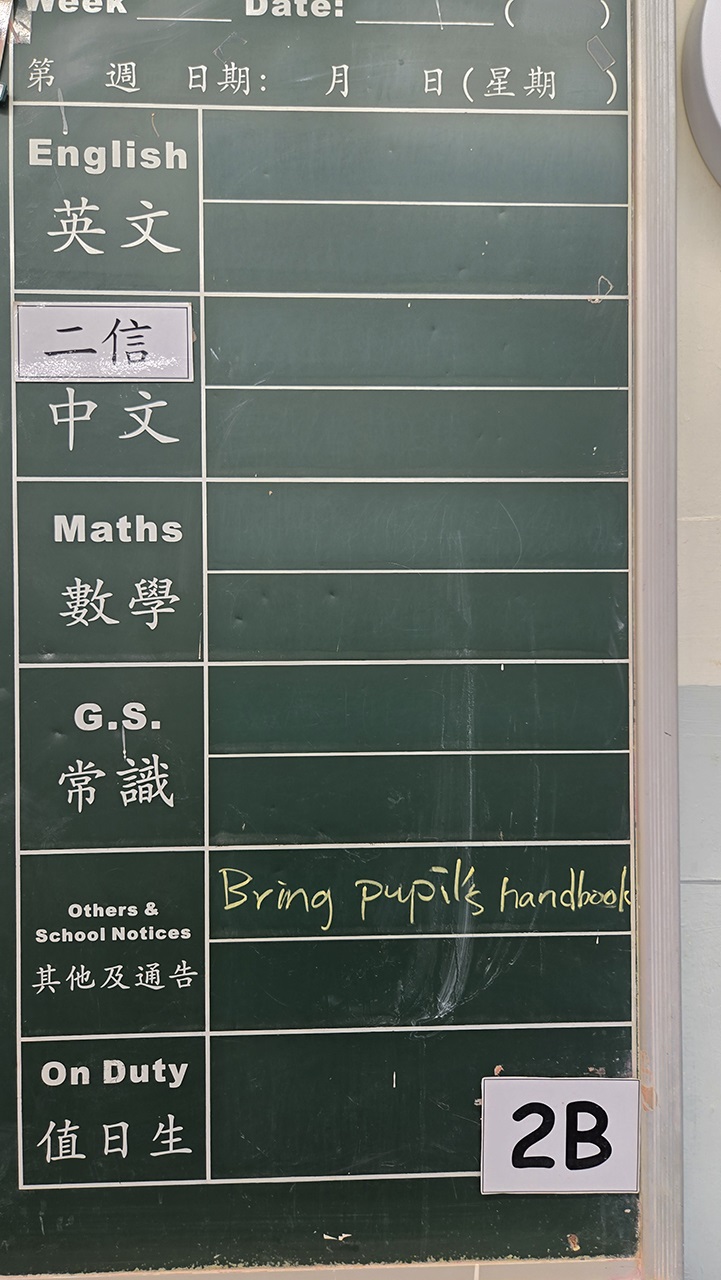 Week ____ Date: ______ (      )
第 週 日期: 月 日(星期 )
English
英文
二信
中文
Maths
數學
G.S.
常識
Others &
School Notices
其他及通告
Bring pupil's handbook
On Duty
值日生
2B